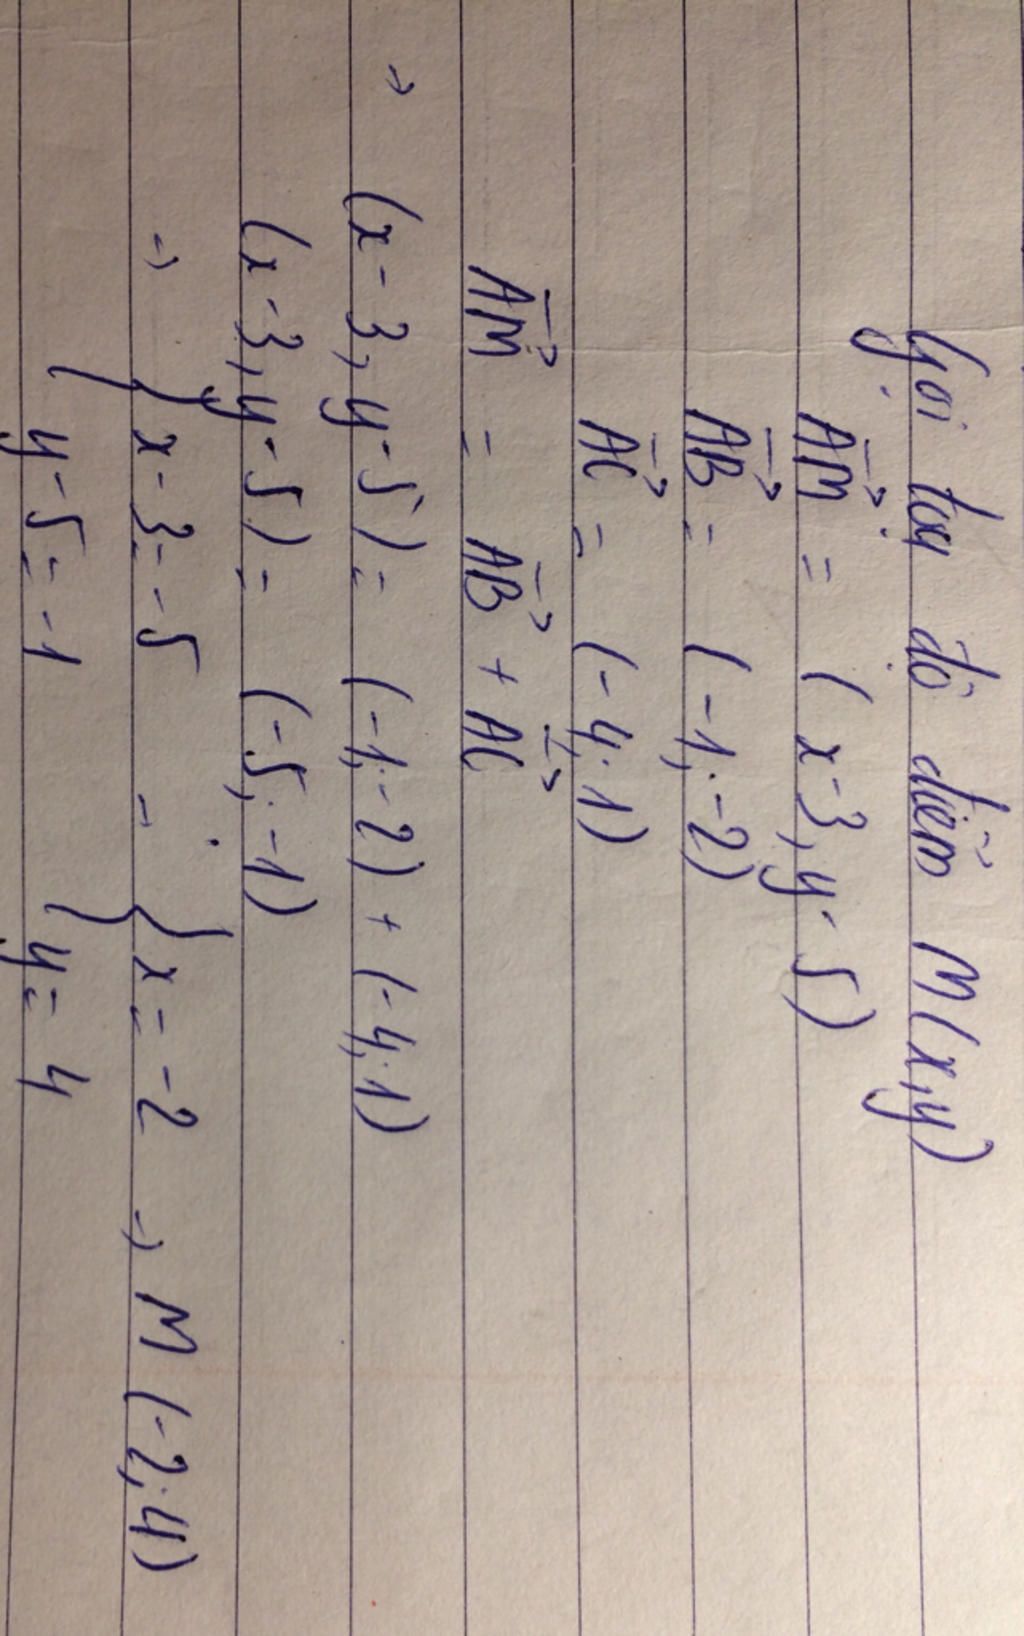 Gọi tọa độ điểm M(x,y)
AM→ = (x-3, y-5)
AB→ = (-1;-2)
AC→ = (-4;1)
AM→ = AB→ + AC→
→ (x-3, y-5) = (-1;-2) + (-4;1)
(x-3, y-5) = (-5;-1)
→ { x-3=-5 → { x=-2 → M(-2;4)
y-5=-1 y=4